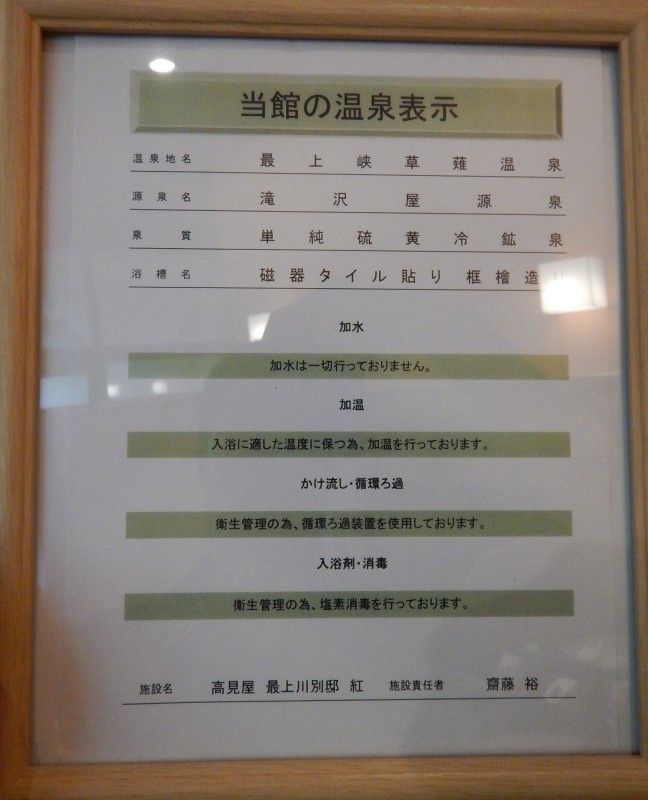 当館の温泉表示
温泉地名 最上峡草薙温泉
源泉名 滝沢屋源泉
泉質 単純硫黄冷鉱泉
浴槽名 磁器タイル貼り 框檜造り
加水
加水は一切行っておりません。
加温
入浴に適した温度に保つ為、加温を行っております。
かけ流し・循環ろ過
衛生管理の為、循環ろ過装置を使用しております。
入浴剤・消毒
衛生管理の為、塩素消毒を行っております。
施設名 高見屋 最上川別邸 紅 施設責任者 齋藤 裕